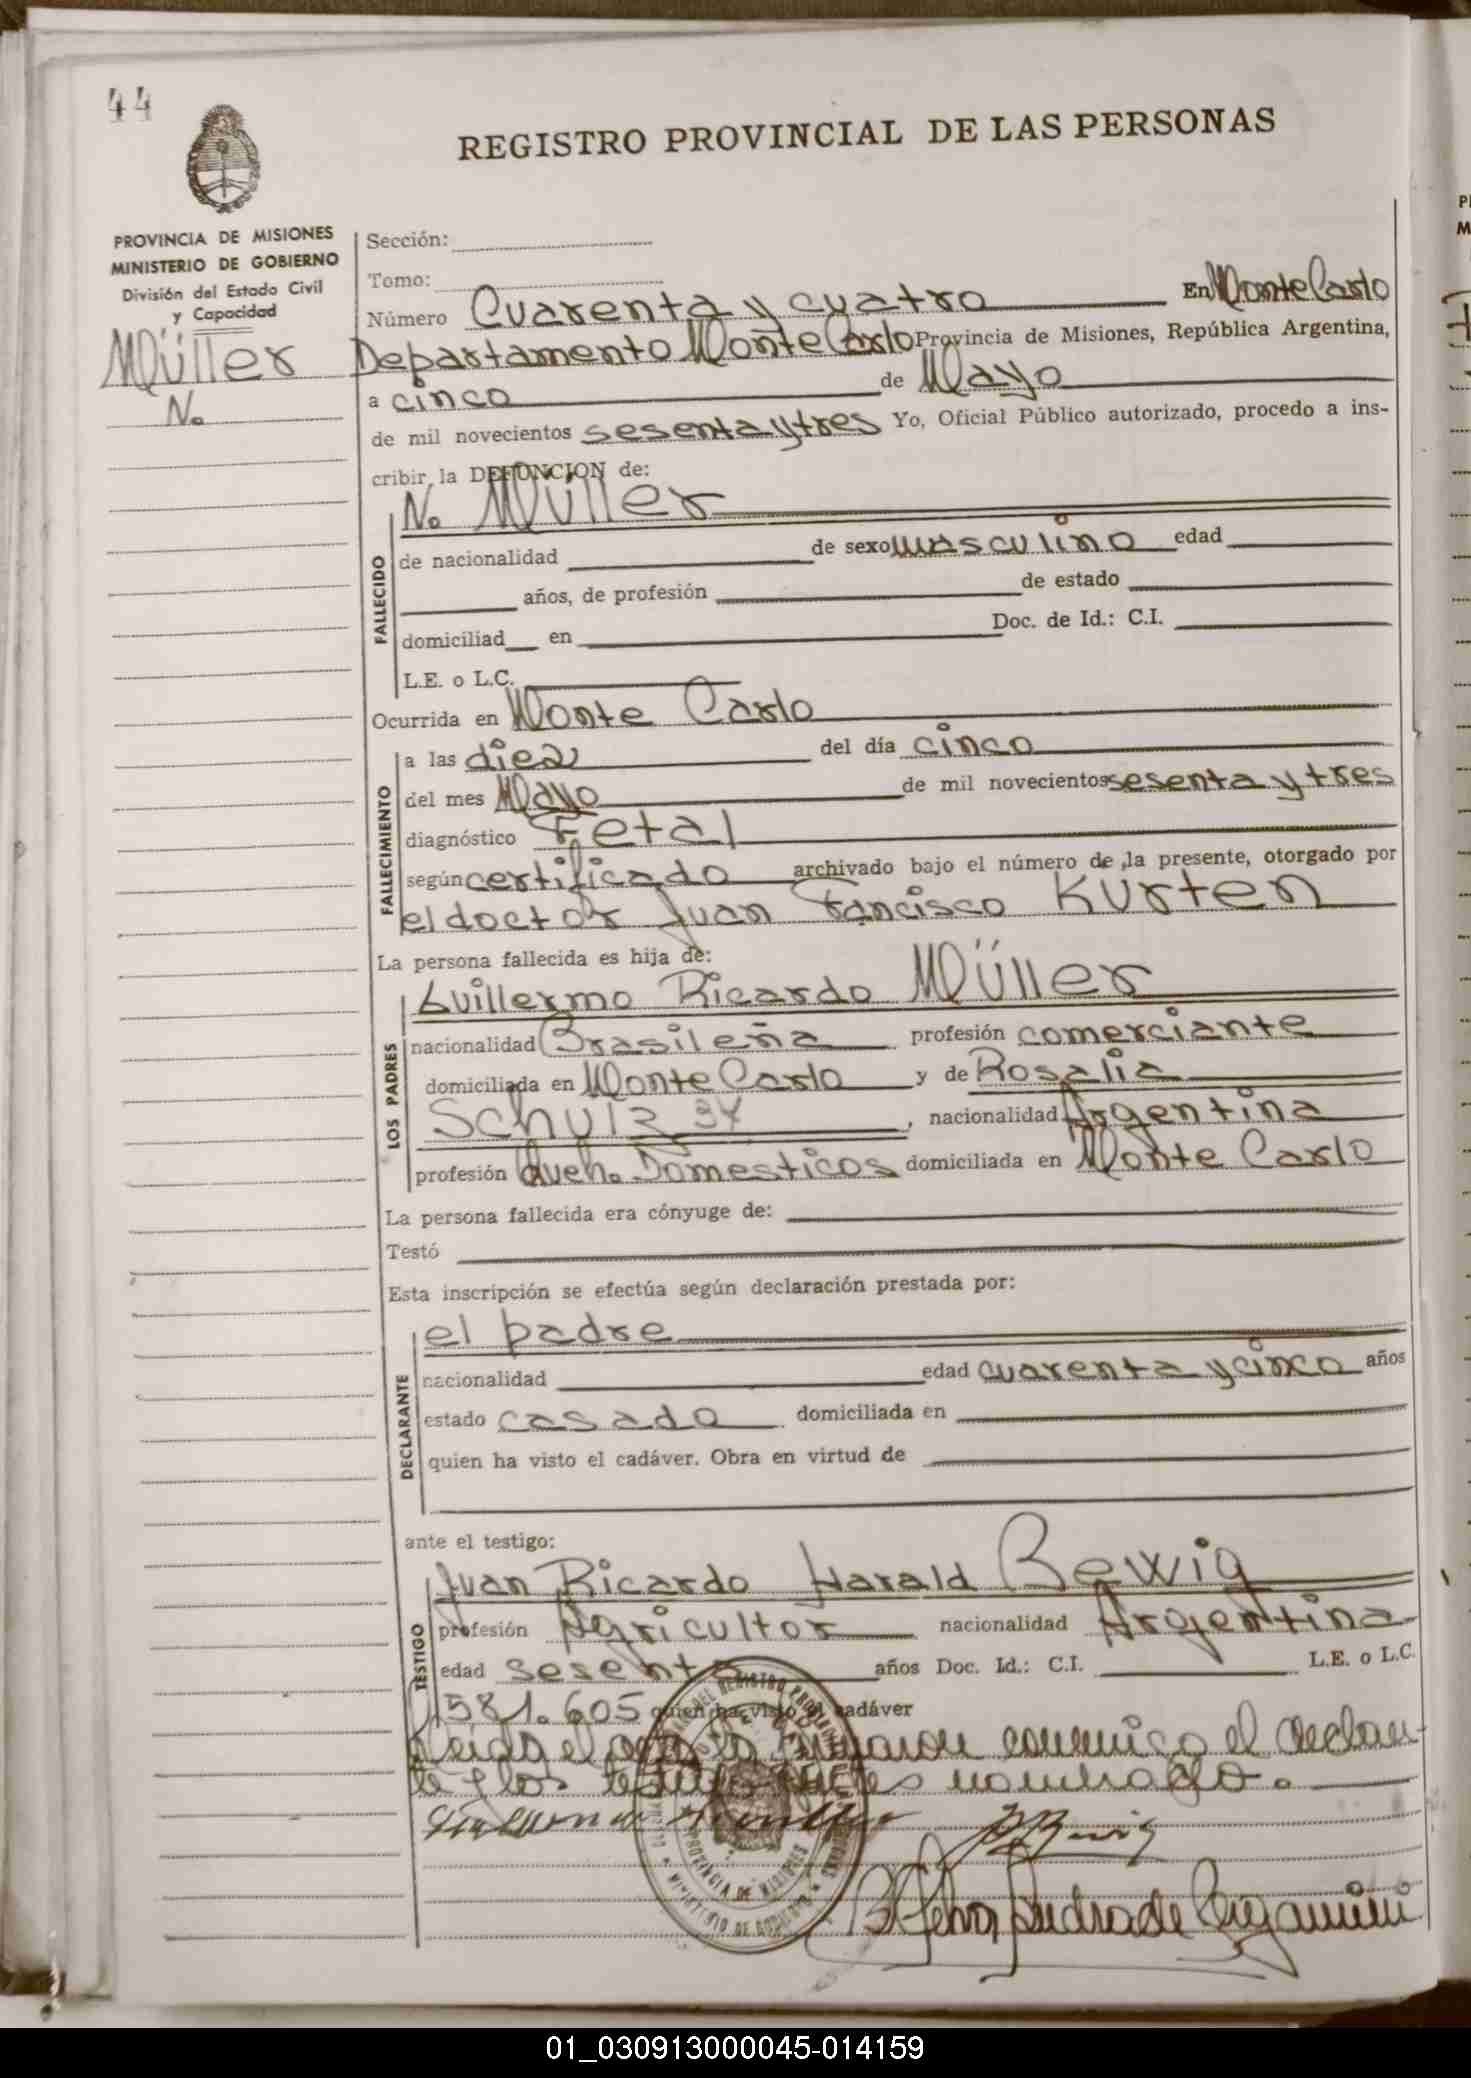 44
REGISTRO PROVINCIAL DE LAS PERSONAS
PROVINCIA DE MISIONES
MINISTERIO DE GOBIERNO
División del Estado Civil
y Capacidad
Müller
N.
Sección:
Tomo:
Número Cuarenta y cuatro En Monte Carlo
Departamento Monte Carlo Provincia de Misiones, República Argentina,
a cinco de Mayo
de mil novecientos sesenta y tres Yo, Oficial Público autorizado, procedo a ins-
cribir la DEFUNCION de:
FALLECIDO
N. Müller
de nacionalidad de sexo masculino edad
años, de profesión de estado
domiciliad en Doc. de Id.: C.I.
L.E. o L.C.
Ocurrida en Monte Carlo
FALLECIMIENTO
a las diez del día cinco
del mes Mayo de mil novecientos sesenta y tres
diagnóstico Fetal
según certificado archivado bajo el número de la presente, otorgado por
el doctor Juan Francisco Kurten
La persona fallecida es hija de:
LOS PADRES
Guillermo Ricardo Müller
nacionalidad Brasileña profesión comerciante
domiciliada en Monte Carlo y de Rosalia
Schulz 34, nacionalidad Argentina
profesión Queh. Domesticos domiciliada en Monte Carlo
La persona fallecida era cónyuge de:
Testó
Esta inscripción se efectúa según declaración prestada por:
DECLARANTE
el padre
nacionalidad edad cuarenta y cinco años
estado casado domiciliada en
quien ha visto el cadáver. Obra en virtud de
ante el testigo:
TESTIGO
Juan Ricardo Harald Bewig
profesión Agricultor nacionalidad Argentina
edad sesenta años Doc. Id.: C.I. L.E. o L.C.
1581.605 quien ha visto el cadáver
Leída el acta la firmaron conmigo el declaran-
te y los testigos antes nombrado.
PROVINCIA DE MISIONES
MINISTERIO DE GOBIERNO
01_030913000045-014159